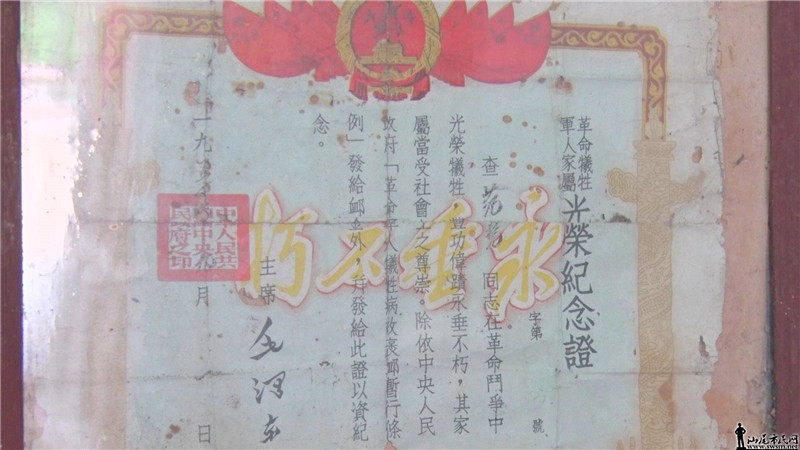 革命犧牲
軍人家屬
光榮紀念證
字第 號
查 同志在革命鬥爭中
光榮犧牲,豐功偉蹟永垂不朽,其家
屬當受社會上之尊崇。除依中央人民
政府「革命軍人犧牲病故褒卹暫行條
例」發給卹金外,并發給此證以資紀
念。
主席 毛澤东
一九 月 一 日
永垂不朽
中央人民
政府之印
汕尾市民网